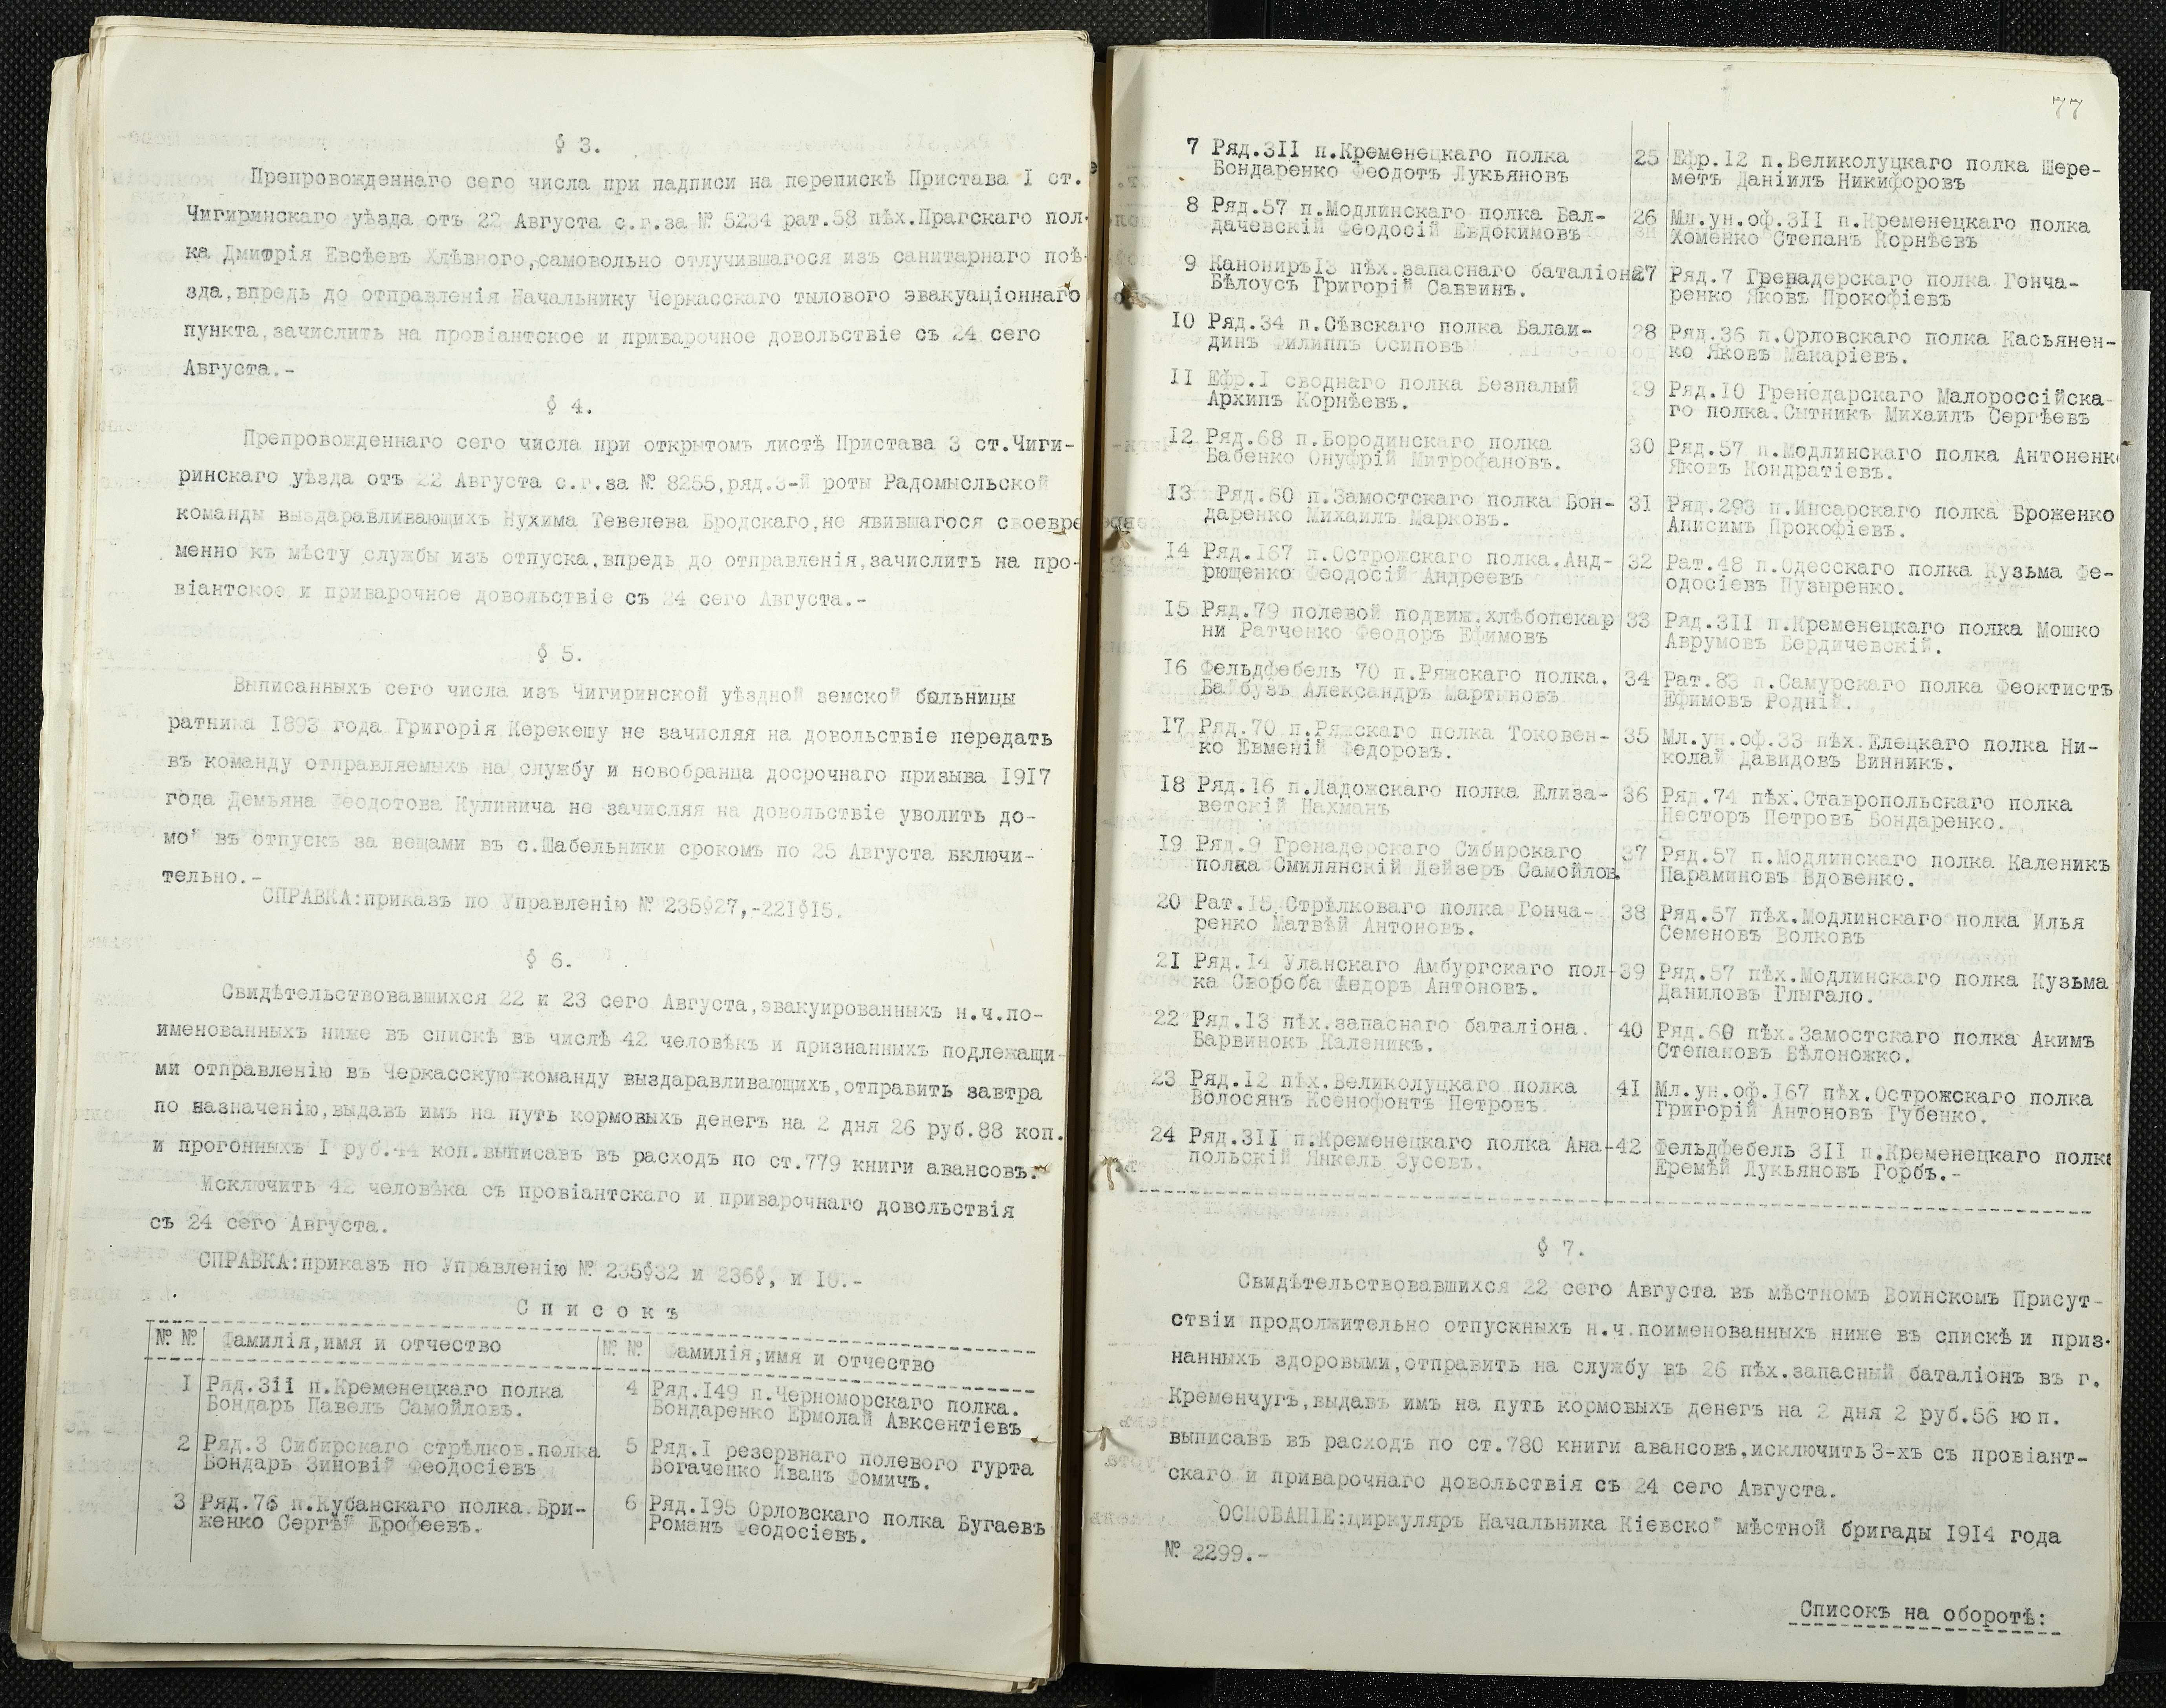 § 3.
Препровожденнаго сего числа при надписи на перепискѣ Пристава I ст.
Чигиринскаго уѣзда отъ 22 Августа с.г.за № 5234 рат.58 пѣх.Прагскаго пол-
ка Дмитрія Евсѣевъ Хлѣвного,самовольно отлучившагося изъ санитарнаго поѣ-
зда,впредь до отправленія Начальнику Черкасскаго тылового эвакуаціоннаго
пункта,зачислить на провіантское и приварочное довольствіе съ 24 сего
Августа.-
§ 4.
Препровожденнаго сего числа при открытомъ листѣ Пристава 3 ст.Чиги-
ринскаго уѣзда отъ 22 Августа с.г.за № 8255,ряд.3-й роты Радомысльской
команды выздаравливающихъ Нухима Тевелева Бродскаго,не явившагося своевре
менно къ мѣсту службы изъ отпуска,впредь до отправленія,зачислить на про-
віантское и приварочное довольствіе съ 24 сего Августа.-
§ 5.
Выписанныхъ сего числа изъ Чигиринской уѣздной земской больницы
ратника 1893 года Григорія Керекешу не зачисляя на довольствіе передать
въ команду отправляемыхъ на службу и новобранца досрочнаго призыва 1917
года Демьяна Феодотова Кулинича не зачисляя на довольствіе уволить до-
мой въ отпускъ за вещами въ с.Шабельники срокомъ по 25 Августа включи-
тельно.-
СПРАВКА:приказъ по Управленію № 235§27,-221§15.
§ 6.
Свидѣтельствовавшихся 22 и 23 сего Августа,эвакуированныхъ н.ч.по-
именованныхъ ниже въ спискѣ въ числѣ 42 человѣкъ и признанныхъ подлежащи-
ми отправленію въ Черкасскую команду выздаравливающихъ,отправить завтра
по назначенію,выдавъ имъ на путь кормовыхъ денегъ на 2 дня 26 руб.88 коп.
и прогонныхъ I руб.44 коп.выписавъ въ расходъ по ст.779 книги авансовъ.
Исключить 42 человѣка съ провіантскаго и приварочнаго довольствія
съ 24 сего Августа.
СПРАВКА:приказъ по Управленію № 235§32 и 236§, и 10.-
С п и с о к ъ
№ № Фамилія,имя и отчество
I Ряд.311 п.Кременецкаго полка
Бондарь Павелъ Самойловъ.
2 Ряд.3 Сибирскаго стрѣлков.полка
Бондарь Зиновій Феодосіевъ
3 Ряд.76 п.Кубанскаго полка Бри-
женко Сергѣй Ерофеевъ.
№ № Фамилія,имя и отчество
4 Ряд.149 п.Черноморскаго полка.
Бондаренко Ермолай Авксентіевъ
5 Ряд.I резервнаго полевого гурта
Богаченко Иванъ Фомичъ.
6 Ряд.195 Орловскаго полка Бугаевъ
Романъ Феодосіевъ.
77
7 Ряд.3II п.Кременецкаго полка
Бондаренко Феодотъ Лукьяновъ
8 Ряд.57 п.Модлинскаго полка Бал-
дачевскій Феодосій Евдокимовъ
9 Канониръ13 пѣх.запаснаго баталіона
Бѣлоусъ Григорій Саввинъ.
10 Ряд.34 п.Сѣвскаго полка Балаи-
динъ Филиппъ Осиповъ
II Ефр.I своднаго полка Безпалый
Архипъ Корнѣевъ.
12 Ряд.68 п.Бородинскаго полка
Бабенко Онуфрій Митрофановъ.
13 Ряд.60 п.Замостскаго полка Бон-
даренко Михаилъ Марковъ.
14 Ряд.167 п.Острожскаго полка.Анд-
рющенко Феодосій Андреевъ
15 Ряд.79 полевой подвиж.хлѣбопекар
ни Ратченко Феодоръ Ефимовъ
16 Фельдфебель 70 п.Ряжскаго полка.
Байбузъ Александръ Мартыновъ
17 Ряд.70 п.Ряжскаго полка Токовен-
ко Евменій Федоровъ.
18 Ряд.16 п.Ладожскаго полка Елиза-
ветскій Нахманъ
19 Ряд.9 Гренадерскаго Сибирскаго
полка Смилянскій Лейзеръ Самойлов.
20 Рат.15 Стрѣлковаго полка Гонча-
ренко Матвѣй Антоновъ.
21 Ряд.14 Уланскаго Амбургскаго пол-
ка Свороба Федоръ Антоновъ.
22 Ряд.13 пѣх.запаснаго баталіона.
Барвинокъ Каленикъ.
23 Ряд.12 пѣх.Великолуцкаго полка
Волосянъ Ксенофонтъ Петровъ
24 Ряд.3II п.Кременецкаго полка Ана-
польскій Янкель Зусевъ.
25 Ефр.12 п.Великолуцкаго полка Шере-
метъ Даніилъ Никифоровъ
26 Мл.ун.оф.3II п.Кременецкаго полка
Хоменко Степанъ Корнѣевъ
27 Ряд.7 Гренадерскаго полка Гонча-
ренко Яковъ Прокофіевъ
28 Ряд.36 п.Орловскаго полка Касьянен-
ко Яковъ Макаріевъ.
29 Ряд.10 Гренедарскаго Малороссійска-
го полка.Сытникъ Михаилъ Сергѣевъ
30 Ряд.57 п.Модлинскаго полка Антоненко
Яковъ Кондратіевъ.
31 Ряд.293 п.Инсарскаго полка Броженко
Анисимъ Прокофіевъ.
32 Рат.48 п.Одесскаго полка Кузьма Фе-
одосіевъ Пузыренко.
33 Ряд.3II п.Кременецкаго полка Мошко
Аврумовъ Бердичевскій.
34 Рат.83 п.Самурскаго полка Феоктистъ
Ефимовъ Родній.
35 Мл.ун.оф.33 пѣх.Елецкаго полка Ни-
колай Давидовъ Винникъ.
36 Ряд.74 пѣх.Ставропольскаго полка
Несторъ Петровъ Бондаренко.
37 Ряд.57 п.Модлинскаго полка Каленикъ
Параминовъ Вдовенко.
38 Ряд.57 пѣх.Модлинскаго полка Илья
Семеновъ Волковъ
39 Ряд.57 пѣх.Модлинскаго полка Кузьма
Даниловъ Глыгало.
40 Ряд.60 пѣх.Замостскаго полка Акимъ
Степановъ Бѣлоножко.
41 Мл.ун.оф.167 пѣх.Острожскаго полка
Григорій Антоновъ Губенко.
42 Фельдфебель 3II п.Кременецкаго полка
Еремѣй Лукьяновъ Горбъ.-
§ 7.
Свидѣтельствовавшихся 22 сего Августа въ мѣстномъ Воинскомъ Присут-
ствіи продолжительно отпускныхъ н.ч.поименованныхъ ниже въ спискѣ и приз-
нанныхъ здоровыми,отправить на службу въ 26 пѣх.запасный баталіонъ въ г.
Кременчугъ,выдавъ имъ на путь кормовыхъ денегъ на 2 дня 2 руб.56 коп.
выписавъ въ расходъ по ст.780 книги авансовъ.исключить 3-хъ съ провіант-
скаго и приварочнаго довольствія съ 24 сего Августа.
ОСНОВАНІЕ:циркуляръ Начальника Кіевской мѣстной бригады 1914 года
№ 2299.-
Списокъ на оборотѣ: